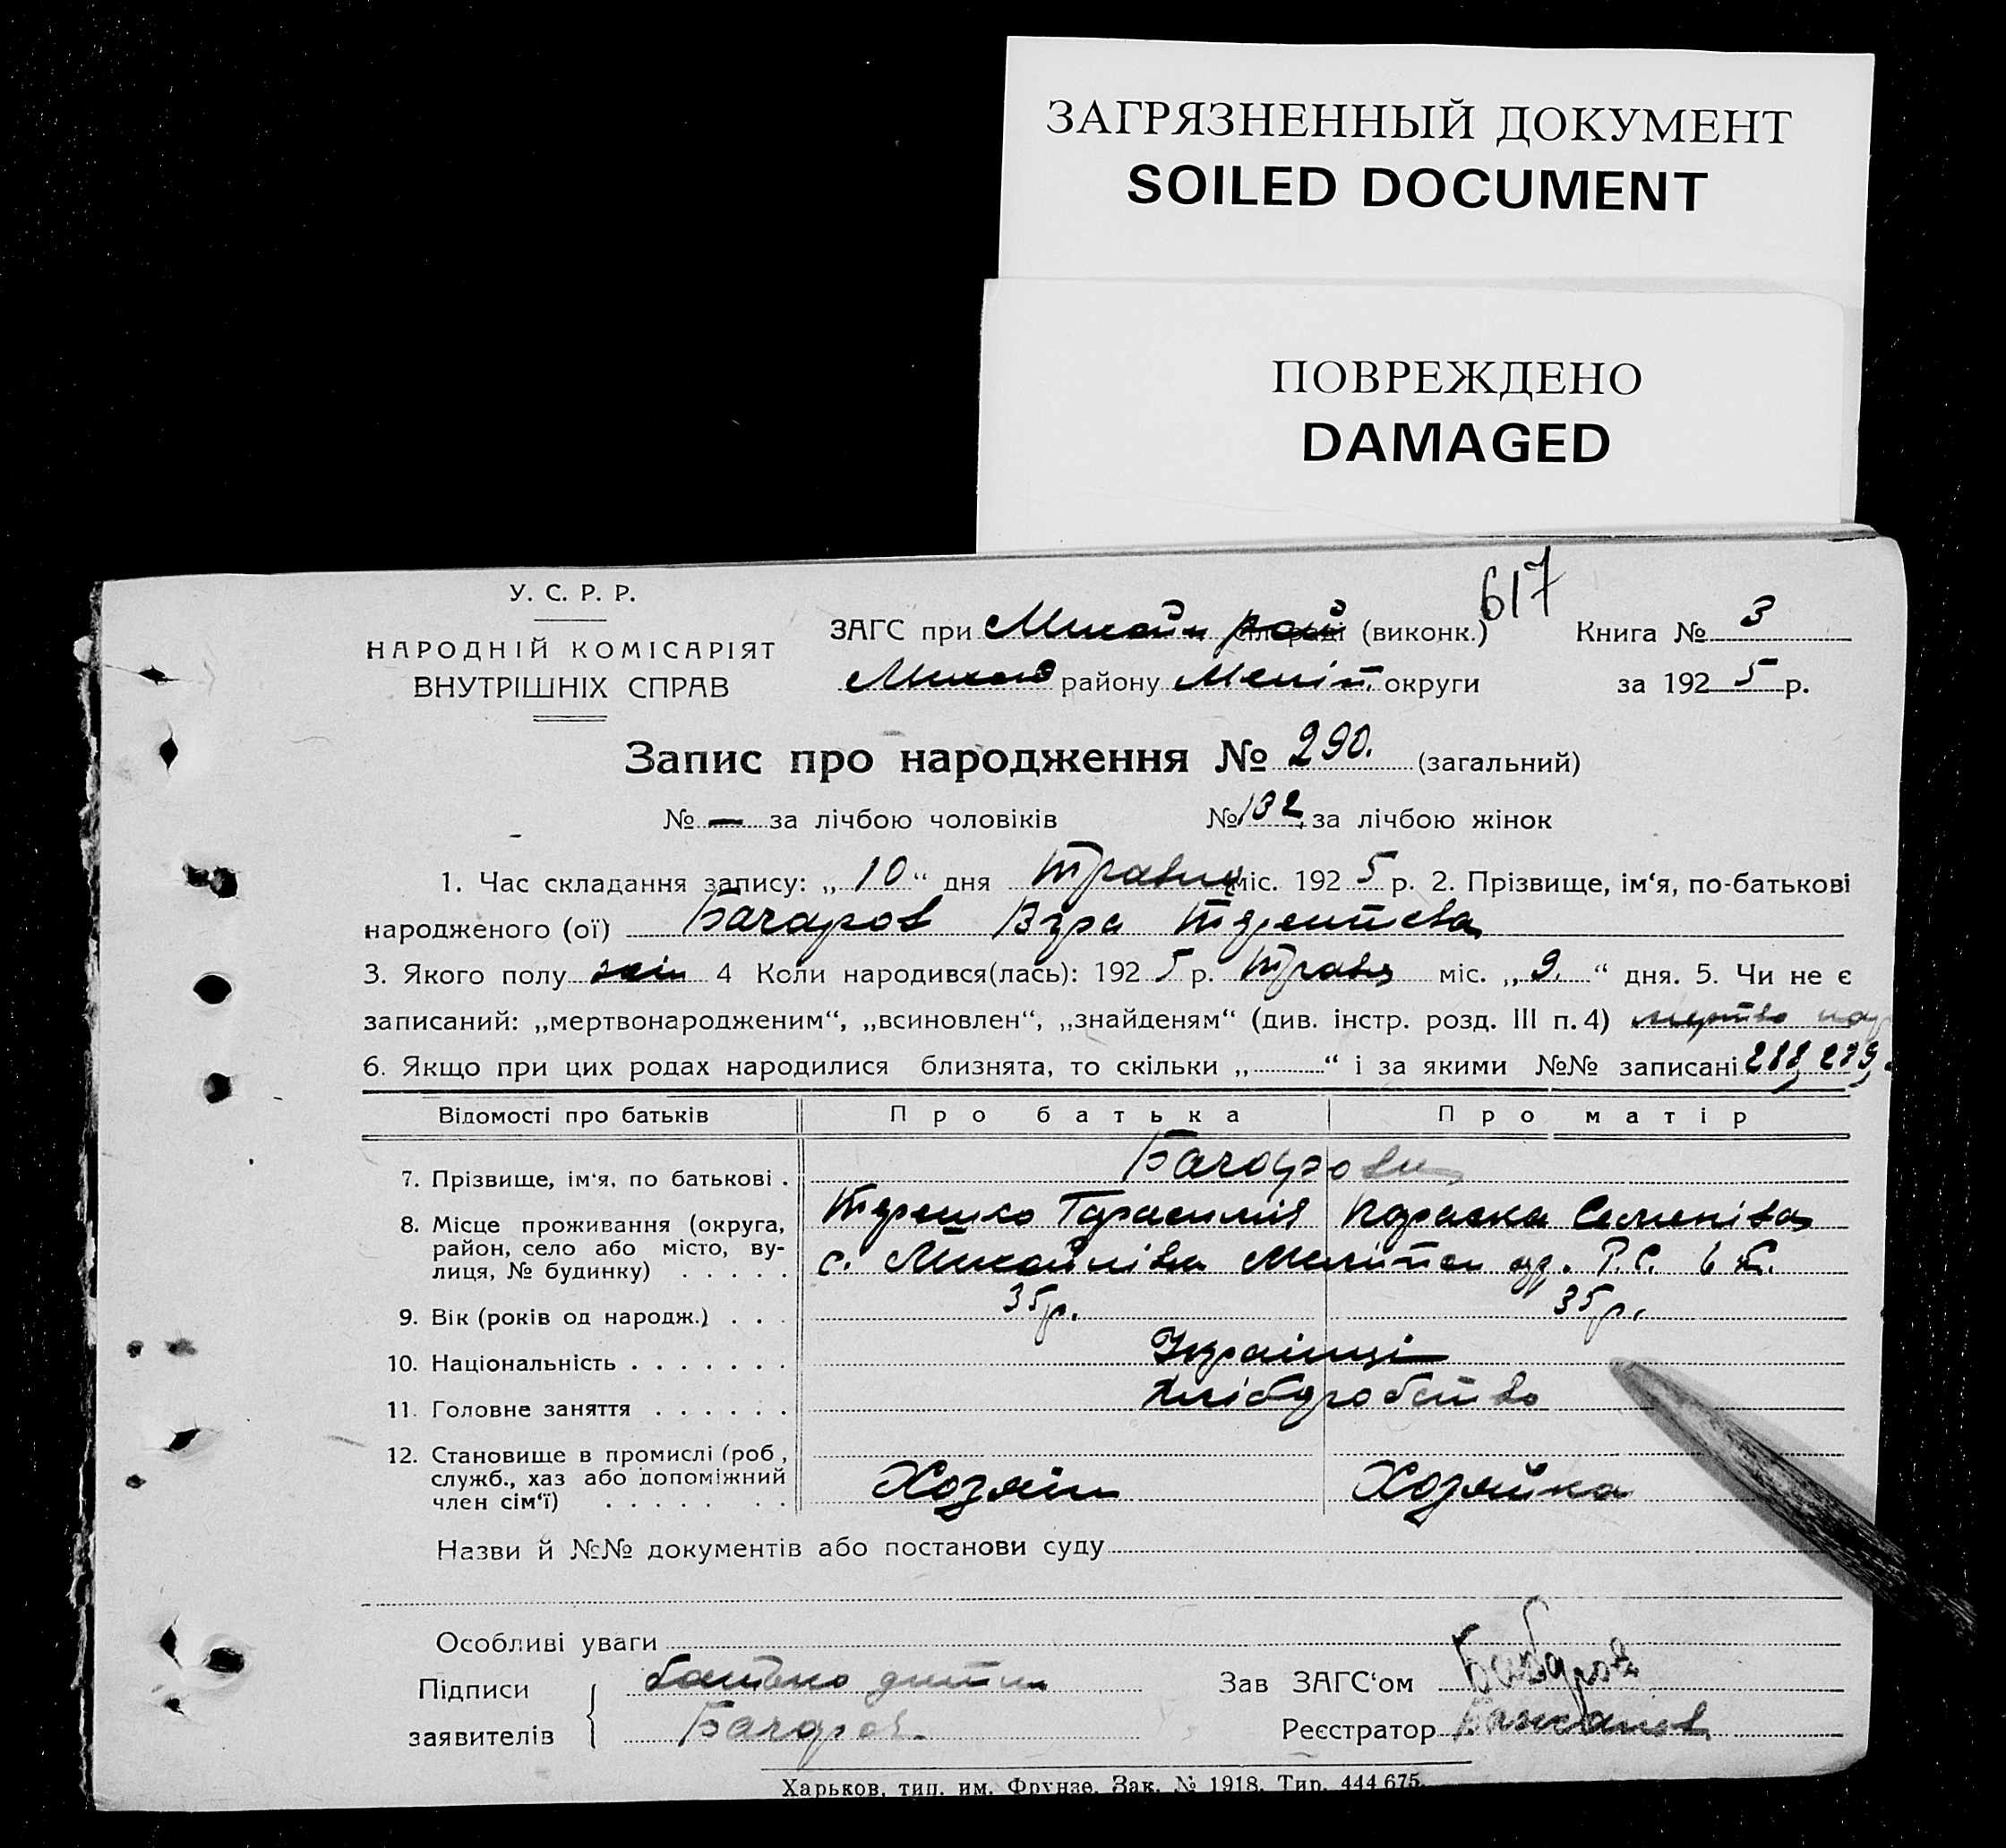 ЗАГРЯЗНЕННЫЙ ДОКУМЕНТ
SOILED DOCUMENT
ПОВРЕЖДЕНО
DAMAGED
617
У. С. Р. Р.
НАРОДНІЙ КОМІСАРІЯТ
ВНУТРІШНІХ СПРАВ
ЗАГС при Михайл рай (виконк.)
Книга № 3
району Меліт. округи
за 1925 р.
Запис про народження № 290. (загальний)
№ — за лічбою чоловіків № 132 за лічбою жінок
1. Час складання запису: „10“ дня Травня міс. 1925 р. 2. Прізвище, ім‘я, по-батькові
народженого (ої) Бачаров Віра
3. Якого полу жін 4 Коли народився(лась): 1925 р. Травня міс. „9.“ дня. 5. Чи не є
записаний: „мертвонародженим“, „всиновлен“, „знайденям“ (див. інстр. розд. III п. 4) мертво
6. Якщо при цих родах народилися близнята, то скільки „ “ і за якими №№ записані 288, 289
Відомості про батьків Про батька Про матір
7. Прізвище, ім‘я, по батькові .
8. Місце проживання (округа,
район, село або місто, ву-
лиця, № будинку) . . . . .
Семенівна
с. Михайлівка
9. Вік (років од народж.) . . . 35 р. 35 р.
10. Національність . . . . . . . Українці
11. Головне заняття . . . . . . Хліборобство
12. Становище в промислі (роб,
служб., хаз або допоміжний
член сім‘ї) . . . . . . . Хозяїн Хозяйка
Назви й №№ документів або постанови суду
Особливі уваги
Підписи
заявителів
батько
Бачаров
Зав ЗАГС‘ом
Реєстратор Бажанов
Харьков, тип. им. Фрунзе. Зак. № 1918. Тир. 444.675.